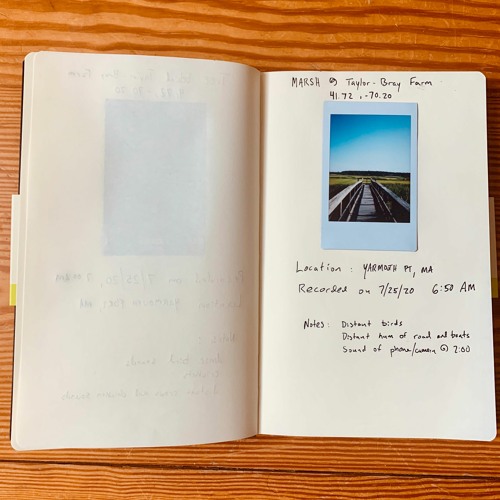 MARSH @ Taylor-Bray Farm
41.72, -70.20
Location: YARMOUTH PT, MA
Recorded on 7/25/20 6:50 AM
Notes: Distant birds
Distant hum of road and boats
Sound of phone/camera @ 2:00